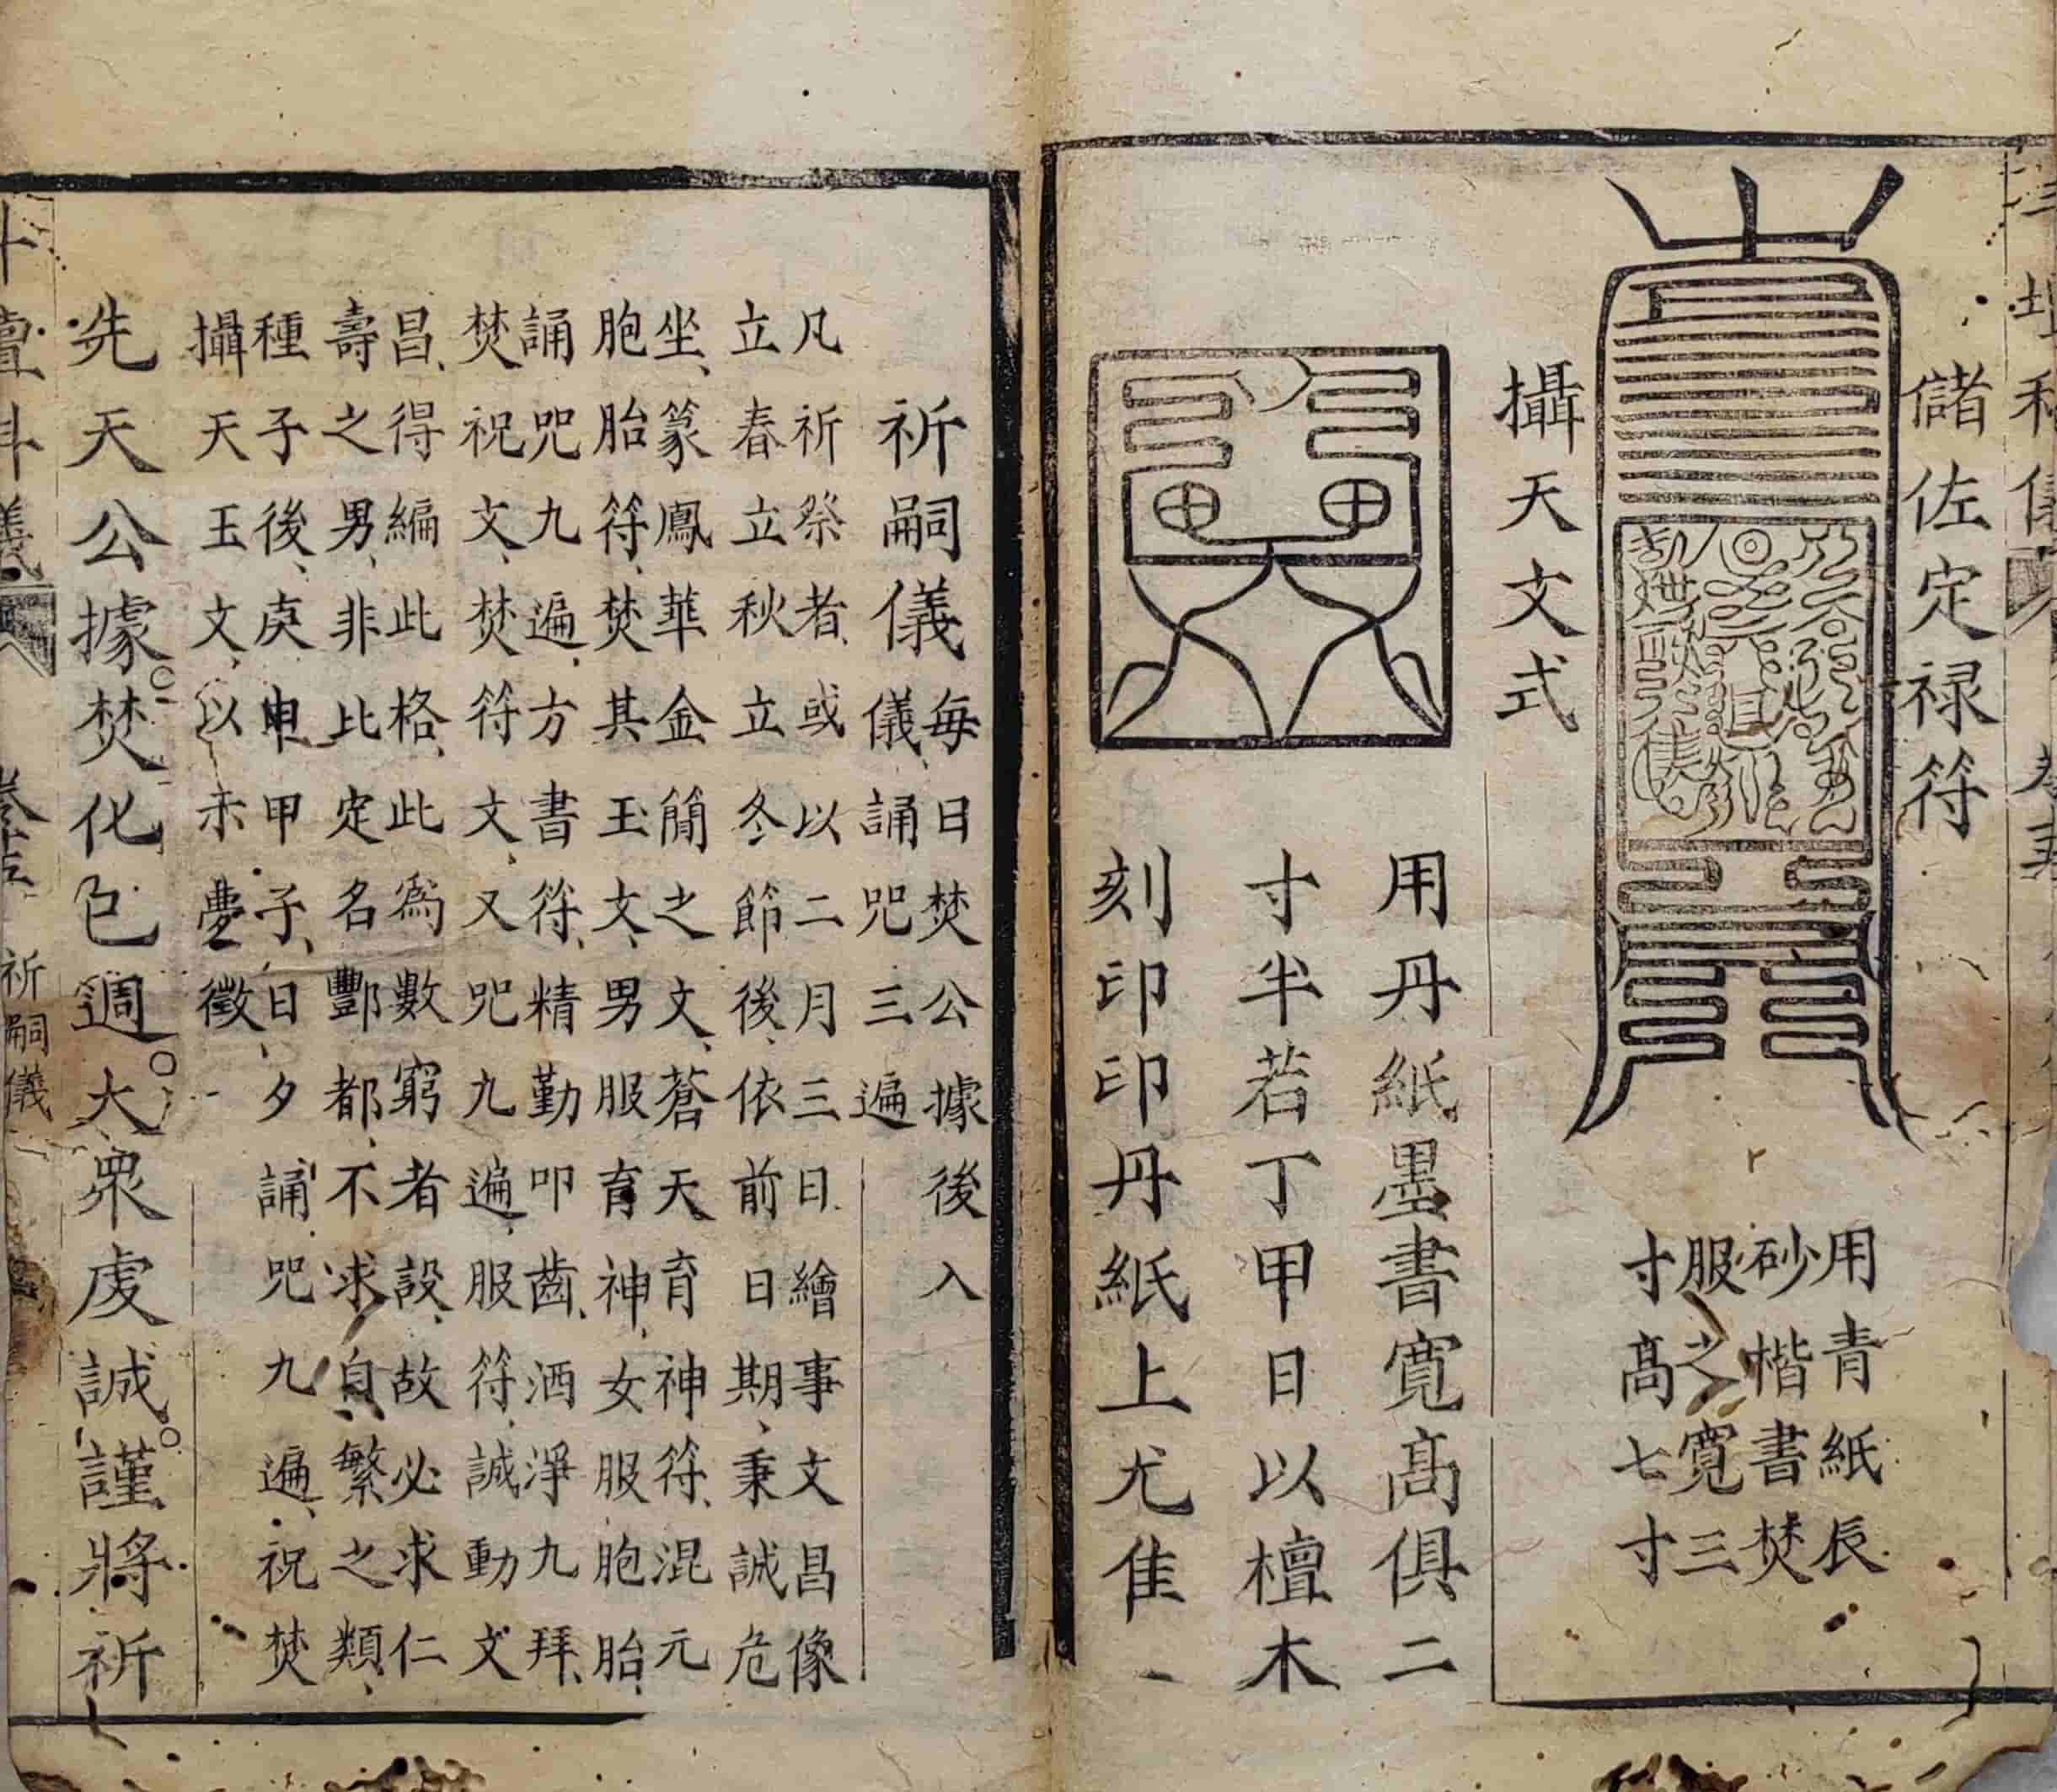 儲佐定禄符
用青紙辰
砂楷書焚
服之寬三
寸高七寸
攝天文式
用丹紙墨書寬高俱二
寸半若丁甲日以檀木
刻印印丹紙上尤佳、
祈嗣儀每日焚公據後入
儀、誦咒三遍
凡祈祭者、或以二月三日繪事文昌像
立春立秋立冬節後、依前日期、秉誠危
坐、篆鳳華金簡之文、蒼天育神符、混元
胞胎符、焚其玉文、男服育神、女服胞胎、
誦咒九遍、方書符、精勤叩齒、洒淨九拜、
焚祝文、焚符文、又咒九遍、服符、誠動文
昌、得編此格、此為數窮者設、故必求仁
壽之男、非比定名酆都、不求自繁之類、
種子後、庚申甲子、日夕誦咒九遍、祝焚
攝天玉文、以示夢徵、
先天公據。焚化已週。大眾虔誠。謹將祈
斗壇科儀
祈嗣儀